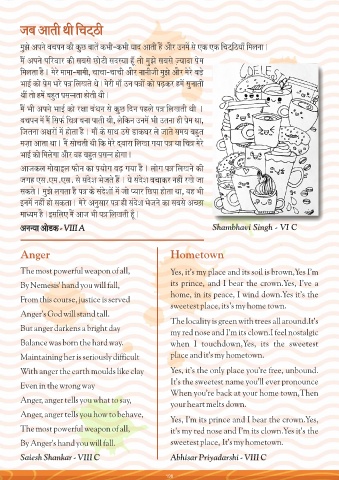 जब आती थी चिट्ठी
मुझे अपने बचपन की कुछ बातें कभी-कभी याद आती हैं और उनमें से एक एक चिट्ठियाँ मिलना।
मैं अपने परिवार की सबसे छोटी सदस्या हूँ तो मुझे सबसे ज्यादा प्रेम
मिलता है। मेरे मामा-मामी, चाचा-चाची और नानीजी मुझे और मेरे बड़े
भाई को प्रेम भरे पत्र लिखते थे। मेरी माँ उन पत्रों को पढ़कर हमें सुनाती
थीं तो हमें बहुत प्रसन्नता होती थी।
मैं भी अपने भाई को रक्षा बंधन से कुछ दिन पहले पत्र लिखती थी।
बचपन में मैं सिर्फ चित्र बना पाती थी, लेकिन उनमें भी उतना ही प्रेम था,
जितना अक्षरों में होता है। माँ के साथ उसे डाकघर ले जाते समय बहुत
मज़ा आता था। मैं सोचती थी कि मेरे द्वारा लिखा गया पत्र या चित्र मेरे
भाई को मिलेगा और वह बहुत प्रसन्न होगा।
आजकल मोबाइल फोन का प्रयोग बढ़ गया है। लोग पत्र लिखने की
जगह एस.एम.एस. से संदेश भेजते हैं। ये संदेश बचाकर नहीं रखे जा
सकते। मुझे लगता है पत्र के संदेशों में जो प्यार छिपा होता था, वह भी
इनमें नहीं हो सकता। मेरे अनुसार पत्र ही संदेश भेजने का सबसे अच्छा
माध्यम है। इसलिए मैं आज भी पत्र लिखती हूँ।
अनन्या ओडक - VIII A
Shambhavi Singh - VI C
Anger
The most powerful weapon of all,
By Nemesis' hand you will fall,
From this course, justice is served
Anger's God will stand tall.
But anger darkens a bright day
Balance was born the hard way.
Maintaining her is seriously difficult
With anger the earth moulds like clay
Even in the wrong way
Anger, anger tells you what to say,
Anger, anger tells you how to behave,
The most powerful weapon of all,
By Anger's hand you will fall.
Saiesh Shankar - VIII C
Hometown
Yes, it's my place and its soil is brown,Yes I'm
its prince, and I bear the crown.Yes, I've a
home, in its peace, I wind down.Yes it's the
sweetest place, its's my home town.
The locality is green with trees all around.It's
my red nose and I'm its clown.I feel nostalgic
when I touchdown,Yes, its the sweetest
place and it's my hometown.
Yes, it's the only place you're free, unbound.
It's the sweetest name you'll ever pronounce
When you're back at your home town,Then
your heart melts down.
Yes, I'm its prince and I bear the crown.Yes,
it's my red nose and I'm its clown.Yes it's the
sweetest place, It's my hometown.
Abhisar Priyadarshi - VIII C